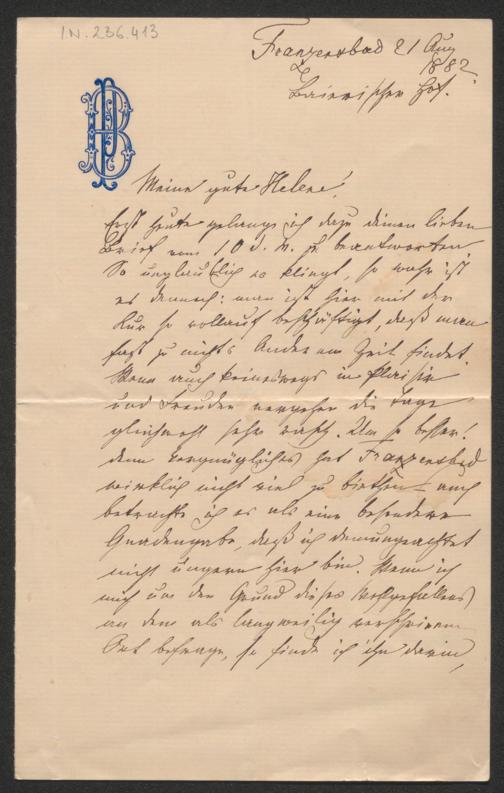 I.N. 236.413
Franzensbad 21 Aug
1882.
Bairischer Hof.
Meine gute Helene!
Erst heute gelange ich dazu deinen lieben
Brief vom 10 d. M. zu beantworten
So unglaublich es klingt, so wahr ist
es dennoch: man ist hier mit der
Kur so vollauf beschäftigt, daß man
fast zu nichts Anderem Zeit findet.
Wenn auch keineswegs in Plaisir
und Freuden vergehen die Tage
gleichwohl sehr rasch. Um so besser!
denn vergnügliches hat Franzensbad
wirklich nicht viel zu biethen – auch
betrachte ich es als eine besondere
Gnadengabe, daß ich demungeachtet
nicht ungern hier bin. Wenn ich
mich um den Grund dieses Wohlgefallens
an dem als langweilig verschrienen
Ort befrage, so finde ich ihn darin,